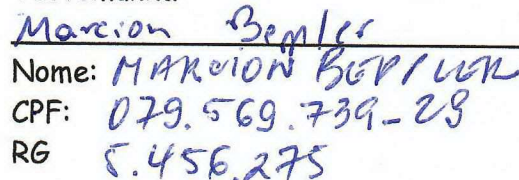 Marcion Beppler
Nome: MARCION BEPPLER
CPF: 079.569.739-29
RG 5.456.275